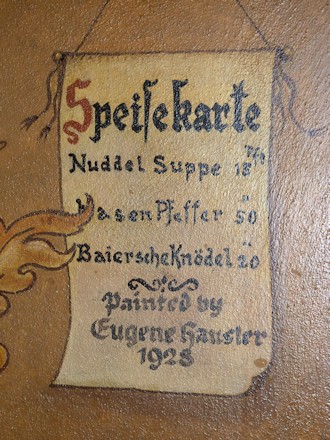 Speiſekarte
Nuddel Suppe 15 Pfg
Hasen Pfeffer 50 "
Baiersche Knödel 20 "
Painted by
Eugene Hauster
1928